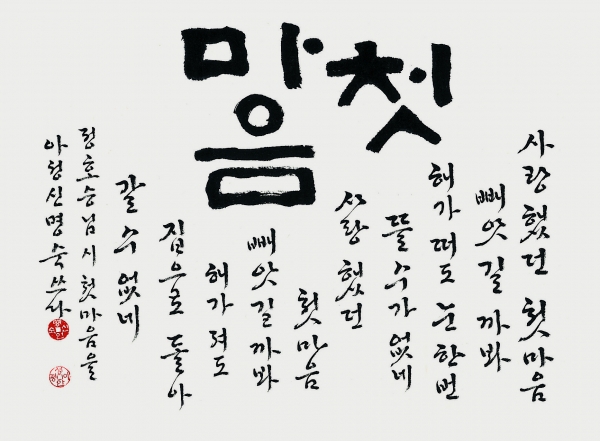 첫마음
사랑했던 첫마음
빼앗길까봐
해가 떠도 눈 한번
뜰 수가 없네
사랑했던
첫마음
빼앗길까봐
해가 져도
집으로 돌아
갈 수 없네
정호승님 시 첫마음을
아정 신명숙 쓰다